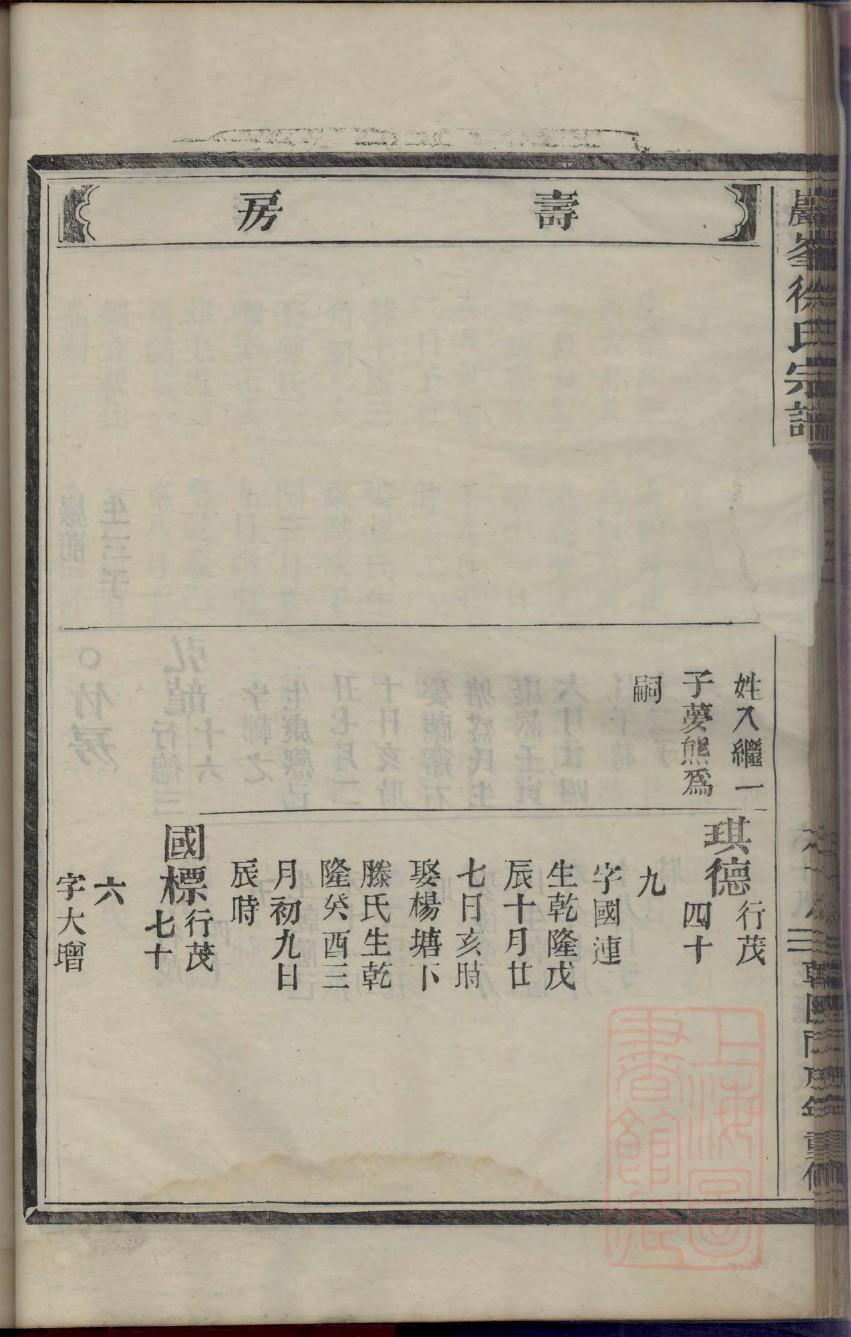 壽房
巖峯徐氏宗譜
姓入繼一
子夢熊爲
嗣
琪德行茂
四十
九
字國連
生乾隆戊
辰十月廿
七日亥時
娶楊塘下
滕氏生乾
隆癸酉三
月初九日
辰時
國標行茂
七十
六
字大璔
重修
上海圖書館藏